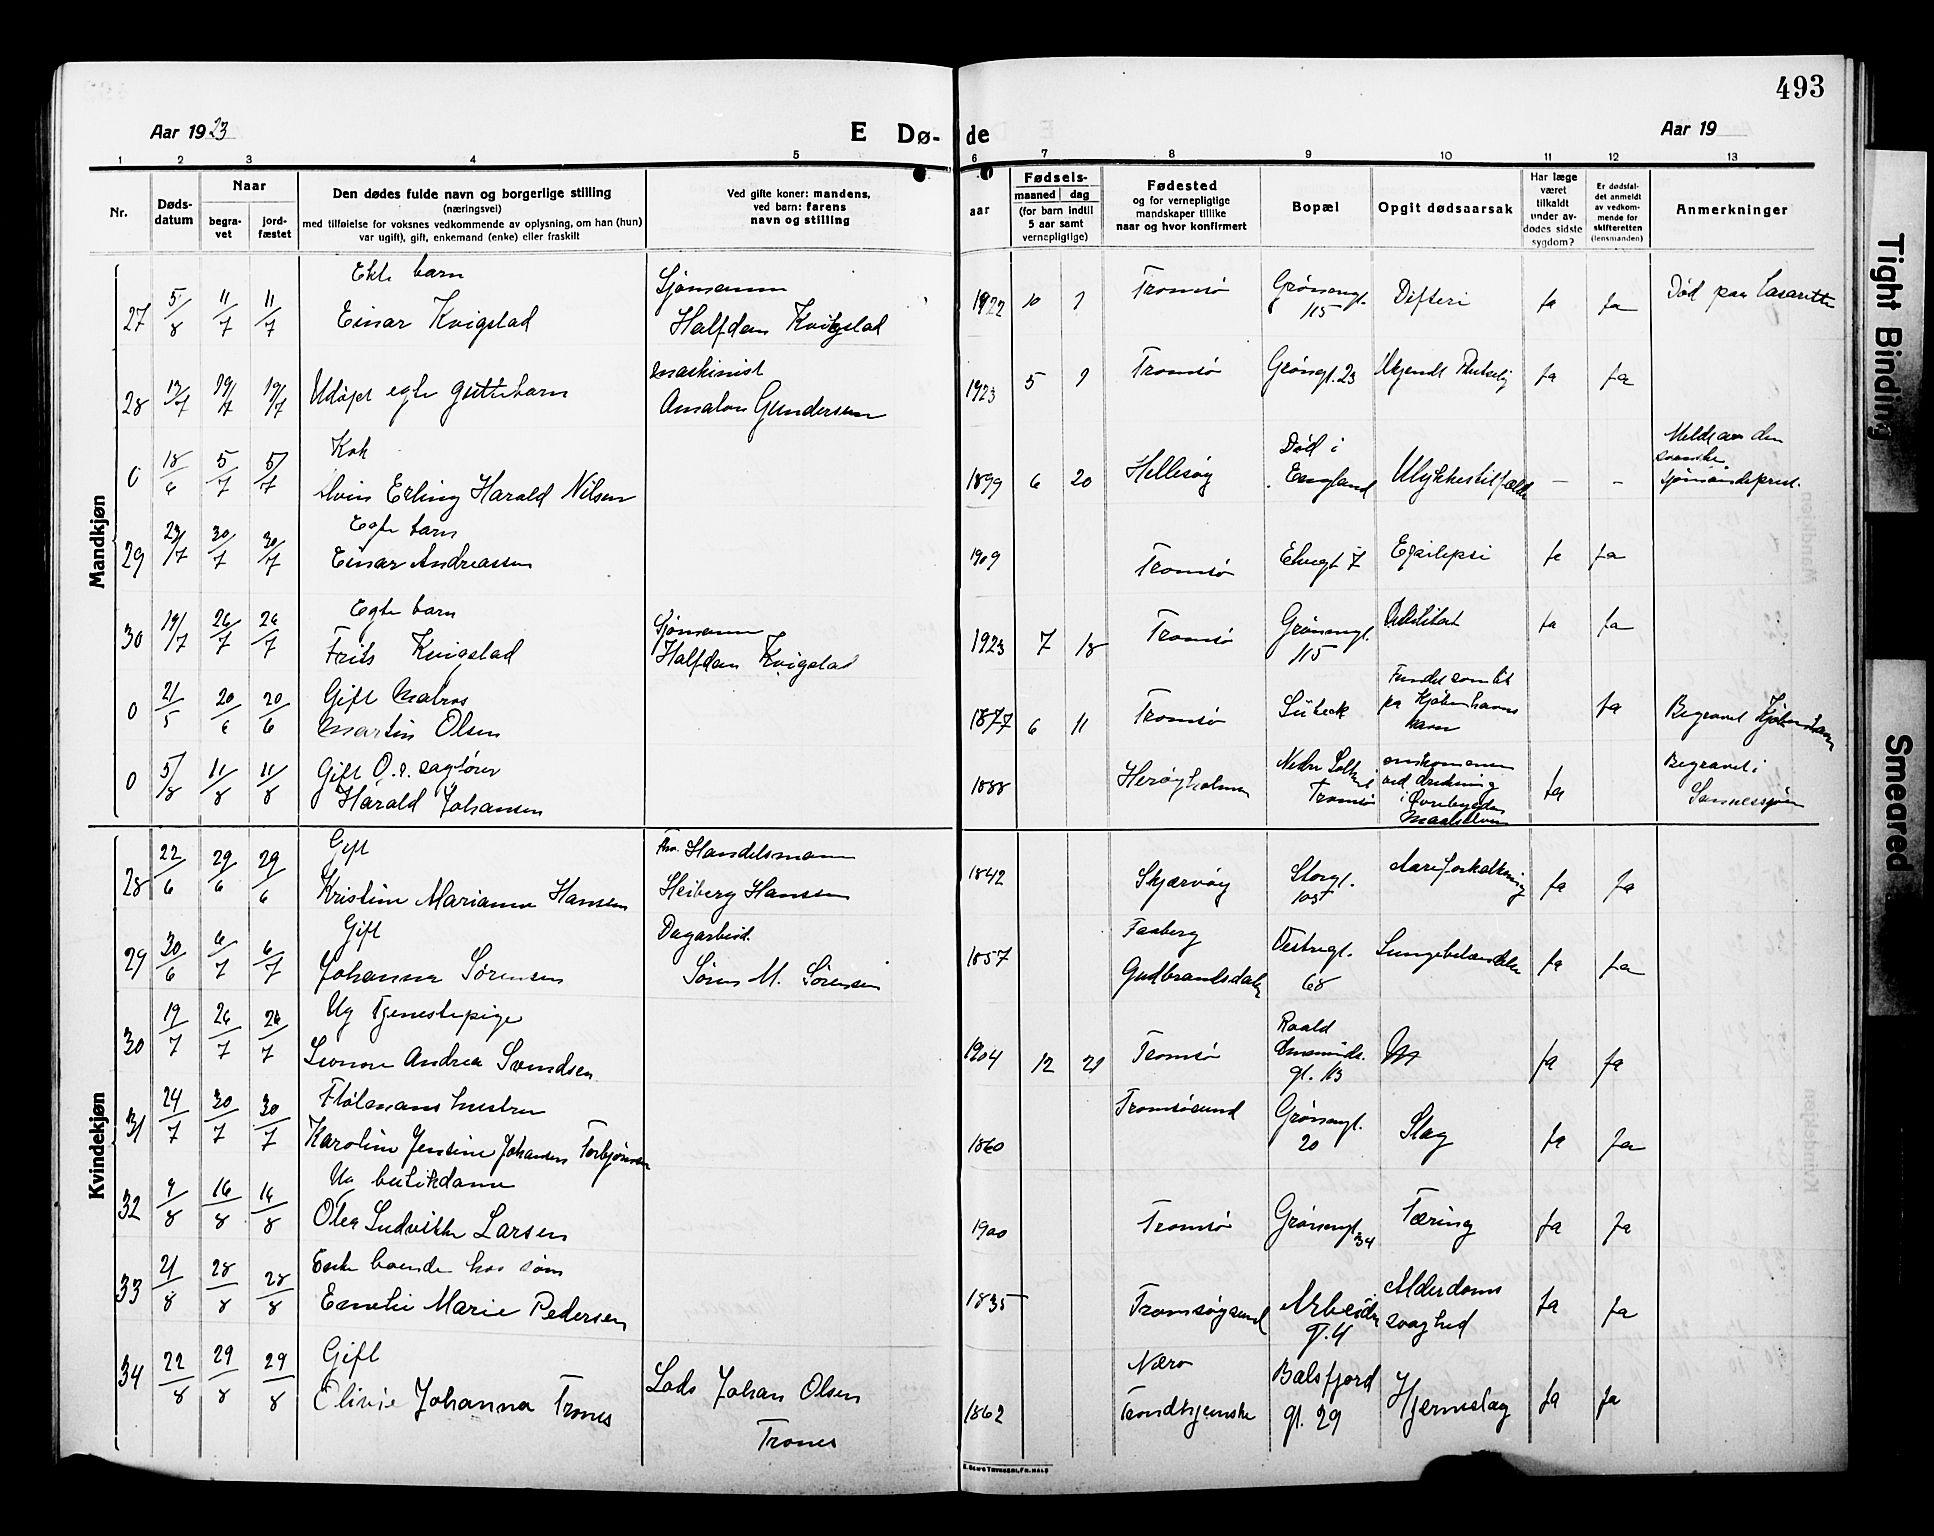 493
Aar 1923
E Dø-
de
Aar 19
1 2 3 4 5 6 7 8 9 10 11 12 13
Nr.
Døds-
datum
Naar
begra-
vet
jord-
fæstet
Den dødes fulde navn og borgerlige stilling
(næringsvei)
med tilføielse for voksnes vedkommende av oplysning, om han (hun)
var ugift), gift, enkemand (enke) eller fraskilt
Ved gifte koner: mandens,
ved barn: farens
navn og stilling
Fødsels-
aar
maaned dag
(for barn indtil
5 aar samt
vernepligtige)
Fødested
og for vernepligtige
mandskaper tillike
naar og hvor konfirmert
Bopæl
Opgit dødsaarsak
Har læge
været
tilkaldt
under av-
dødes sidste
sygdom?
Er dødsfal-
det anmeldt
av vedkom-
mende for
skifteretten
(lensmanden)
Anmerkninger
Mandkjøn
Ekte barn Sjømann
27 5/8 11/7 11/7 Einar Kvigstad Halfdan Kvigstad 1922 10 Tromsø Grønnegt. 115 Difteri Ja Ja Død paa Lasarette
maskinist
28 19/7 19/7 Udøpt egte guttebarn Gundersen 1923 5 Tromsø Grønngt. 23 Ja Ja
Kok
0 18/6 5/7 5/7 Alvin Erling Harald Nilsen 1899 6 20 Hellesøy Død i England Ulykkestilfælde — — svenske
Egte barn
29 23/7 30/7 30/7 Einar Andreassen 1909 Tromsø Elvegt 7 Epilepsi Ja Ja
Egte barn Sjømann
30 19/7 26/7 26/7 Frits Kvigstad Halfdan Kvigstad 1923 7 18 Tromsø Grønnegt. 115 Debilitas Ja Ja
Gift Matros
0 21/5 20/6 20/6 Martin Olsen 1877 6 11 Tromsø Lübeck Fundet som lik paa Kjøbenhavns havn Ja Begravet Kjøbenhavn
Gift O.r. sagfører
0 5/8 11/8 11/8 Harald Johansen 1888 Herøyholmen Tromsø omkommen ved drukning i Øvrebygden Maalselven Ja Begravet i Sannessjøen
Kvindekjøn
Gift Handelsmann
28 22/6 29/6 29/6 Kristine Marianne Hanssen Heiberg Hanssen 1842 Skjærvøy Storgt. 105 Aareforkalkning Ja Ja
Gift Dagarbeid.
29 30/6 6/7 6/7 Johanna Sørensen Søren M. Sørensen 1857 Faaberg Gudbrandsdalen Vestregt. 68 Lungebetændelse Ja Ja
Ug Tjenestepige
30 19/7 26/7 26/7 Leonore Andrea Svendsen 1904 12 21 Tromsø Roald Amunds. gt. 113 Ja Ja
Fløtmans hustru
31 24/7 30/7 30/7 Karoline Jensine Johansen Torbjørnsen 1860 Tromsøsund Grønnegt. 20 Slag Ja Ja
Ug butikdame
32 9/8 16/8 16/8 Olea Ludvikke Larsen 1900 Tromsø Grønnegt 34 Tæring Ja Ja
Enke boende hos søn
33 21/8 28/8 28/8 Emelie Marie Pedersen 1835 Tromsøysund Arbeider gt. 4 Alderdoms svaghed Ja Ja
Gift
34 22/8 29/8 29/8 Olivie Johanna Trones Lods Johan Olsen Trones 1862 Nærø Trondhjemske Balsfjord gt. 29 Hjerneslag Ja Ja
Tight Binding
Smeared